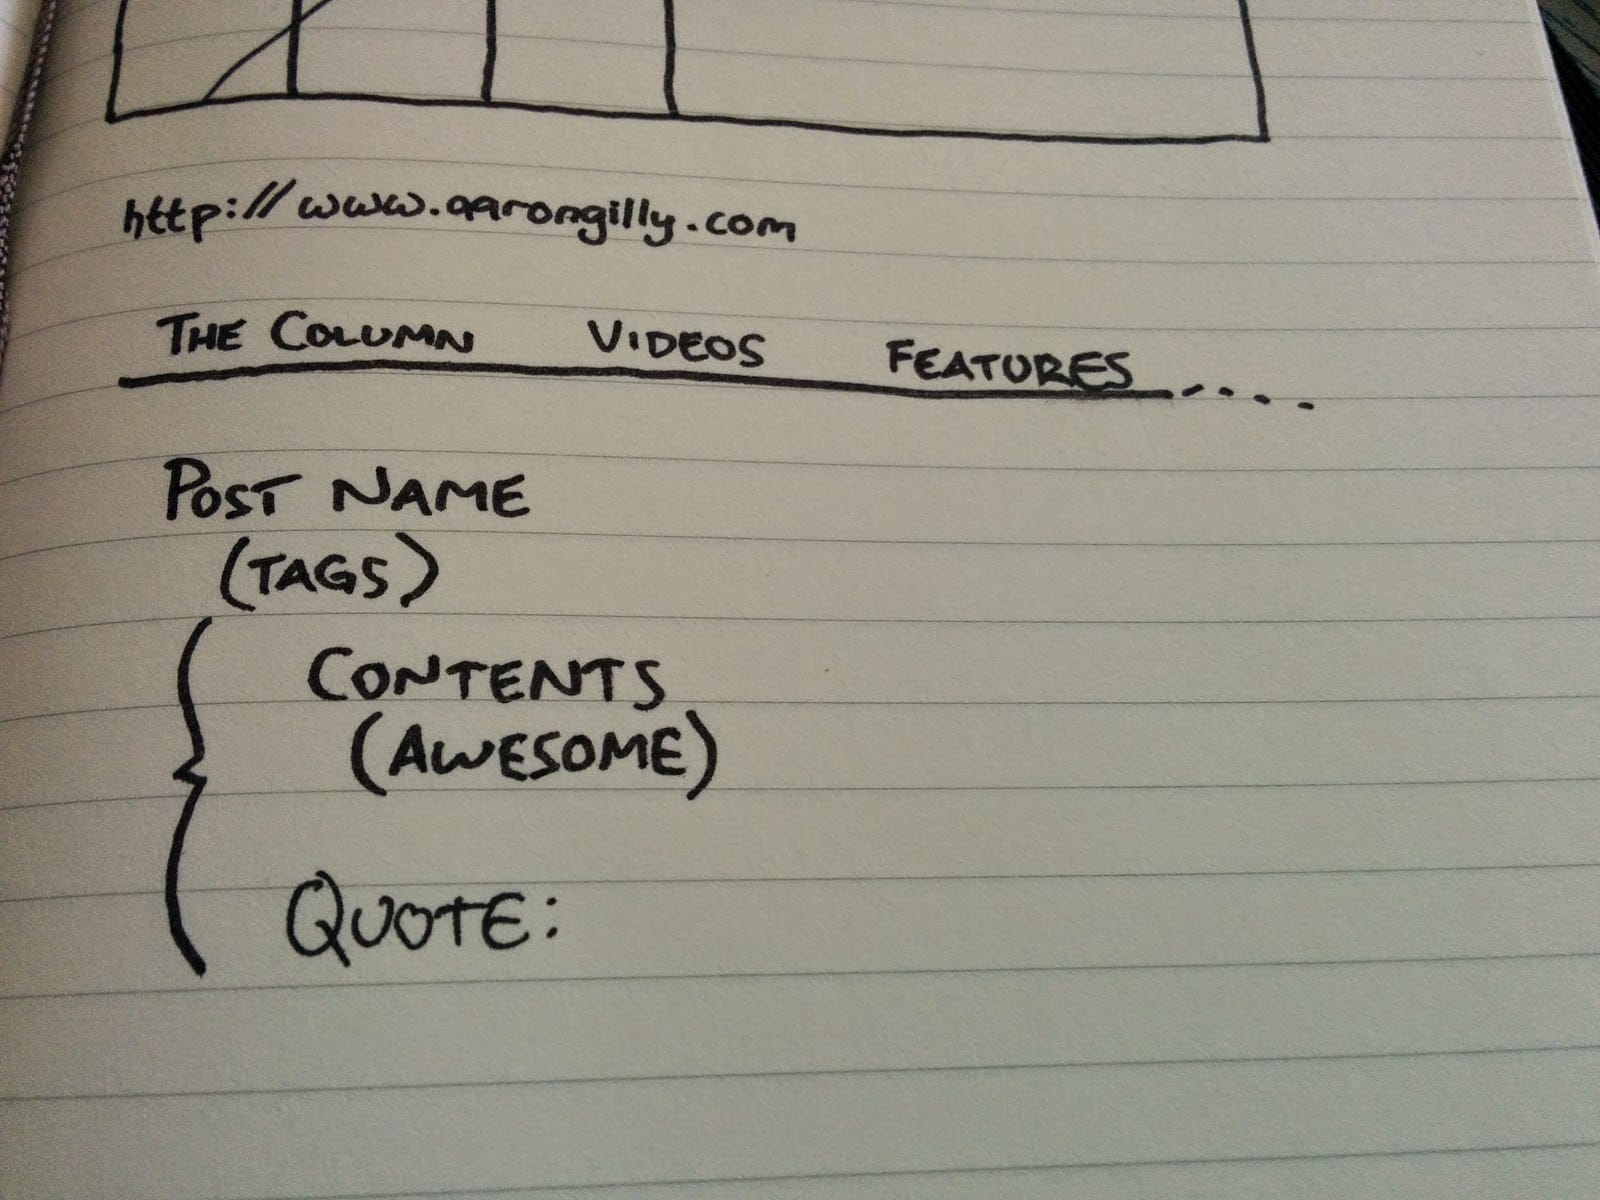 http://www.aarongilly.com
THE COLUMN VIDEOS FEATURES....
POST NAME
(TAGS)
CONTENTS
(AWESOME)
QUOTE: